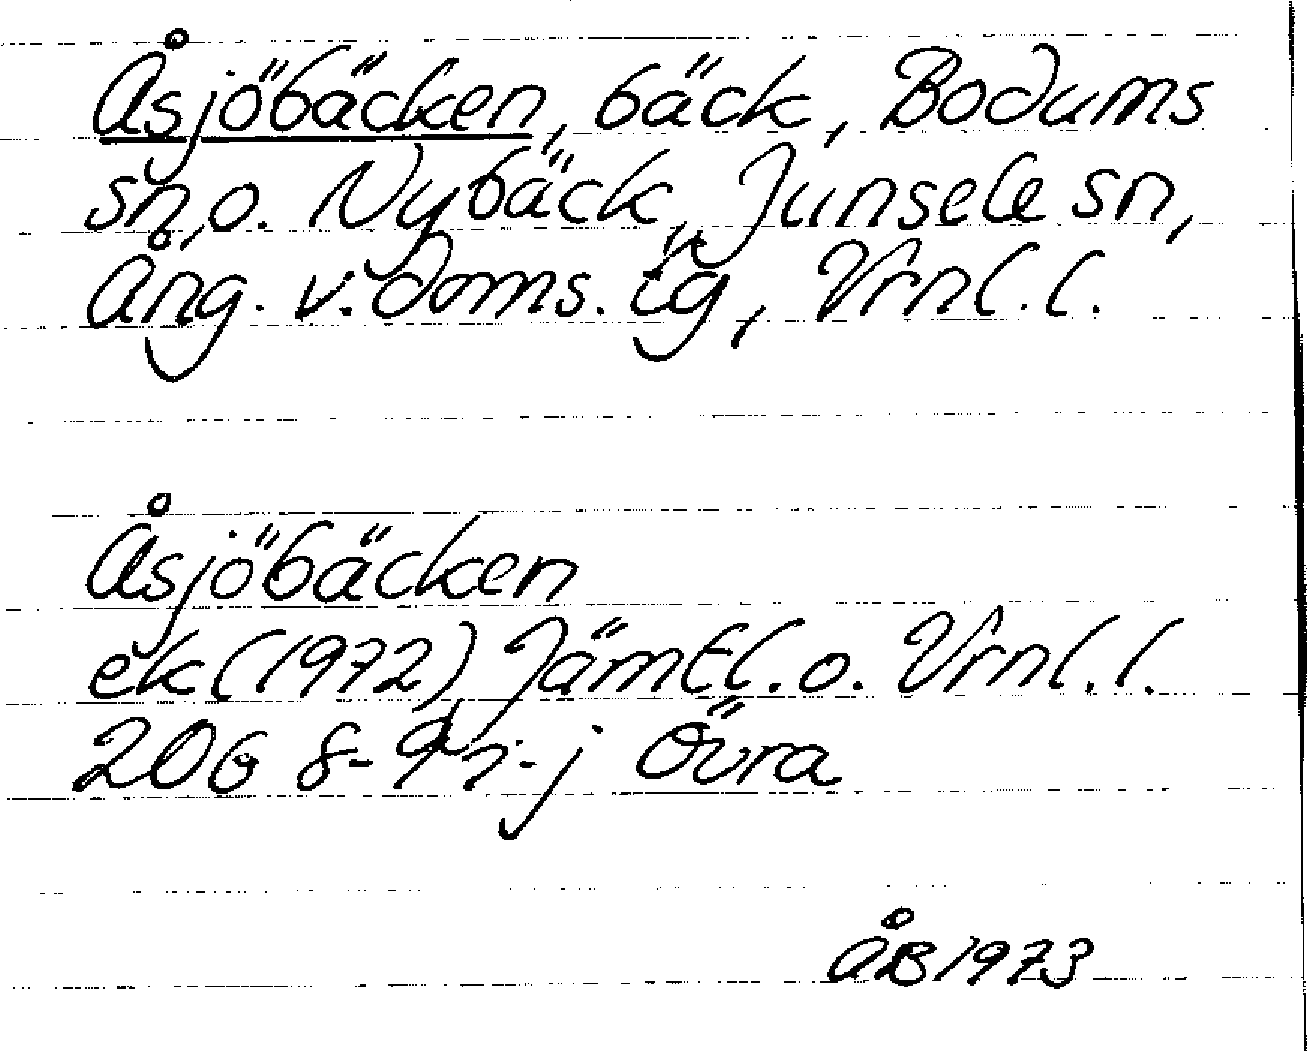 Åsjöbäcken, bäck, Bodums
sn, o. Nybäck, Junsele sn,
Ång. v. doms. tg, Vrnl. l.
Åsjöbäcken
ek (1972) Jämtl. o. Vrnl. l.
20G 8-9 i-j Övra
ÅB 1973